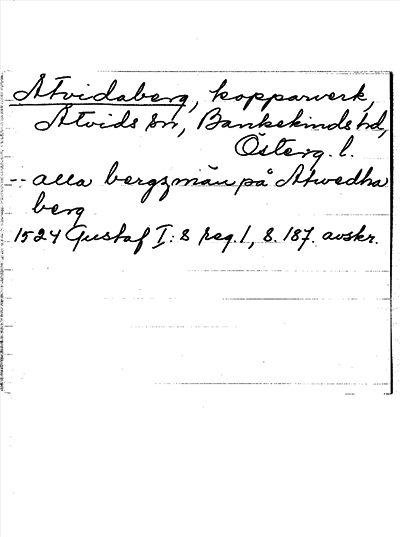 Åtvidaberg, kopparverk,
Åtvids sn, Bankekinds hd,
Österg. l.
-- alla bergzmän på Atwedha
berg
1524 Gustaf I:s reg. 1, s. 187. avskr.